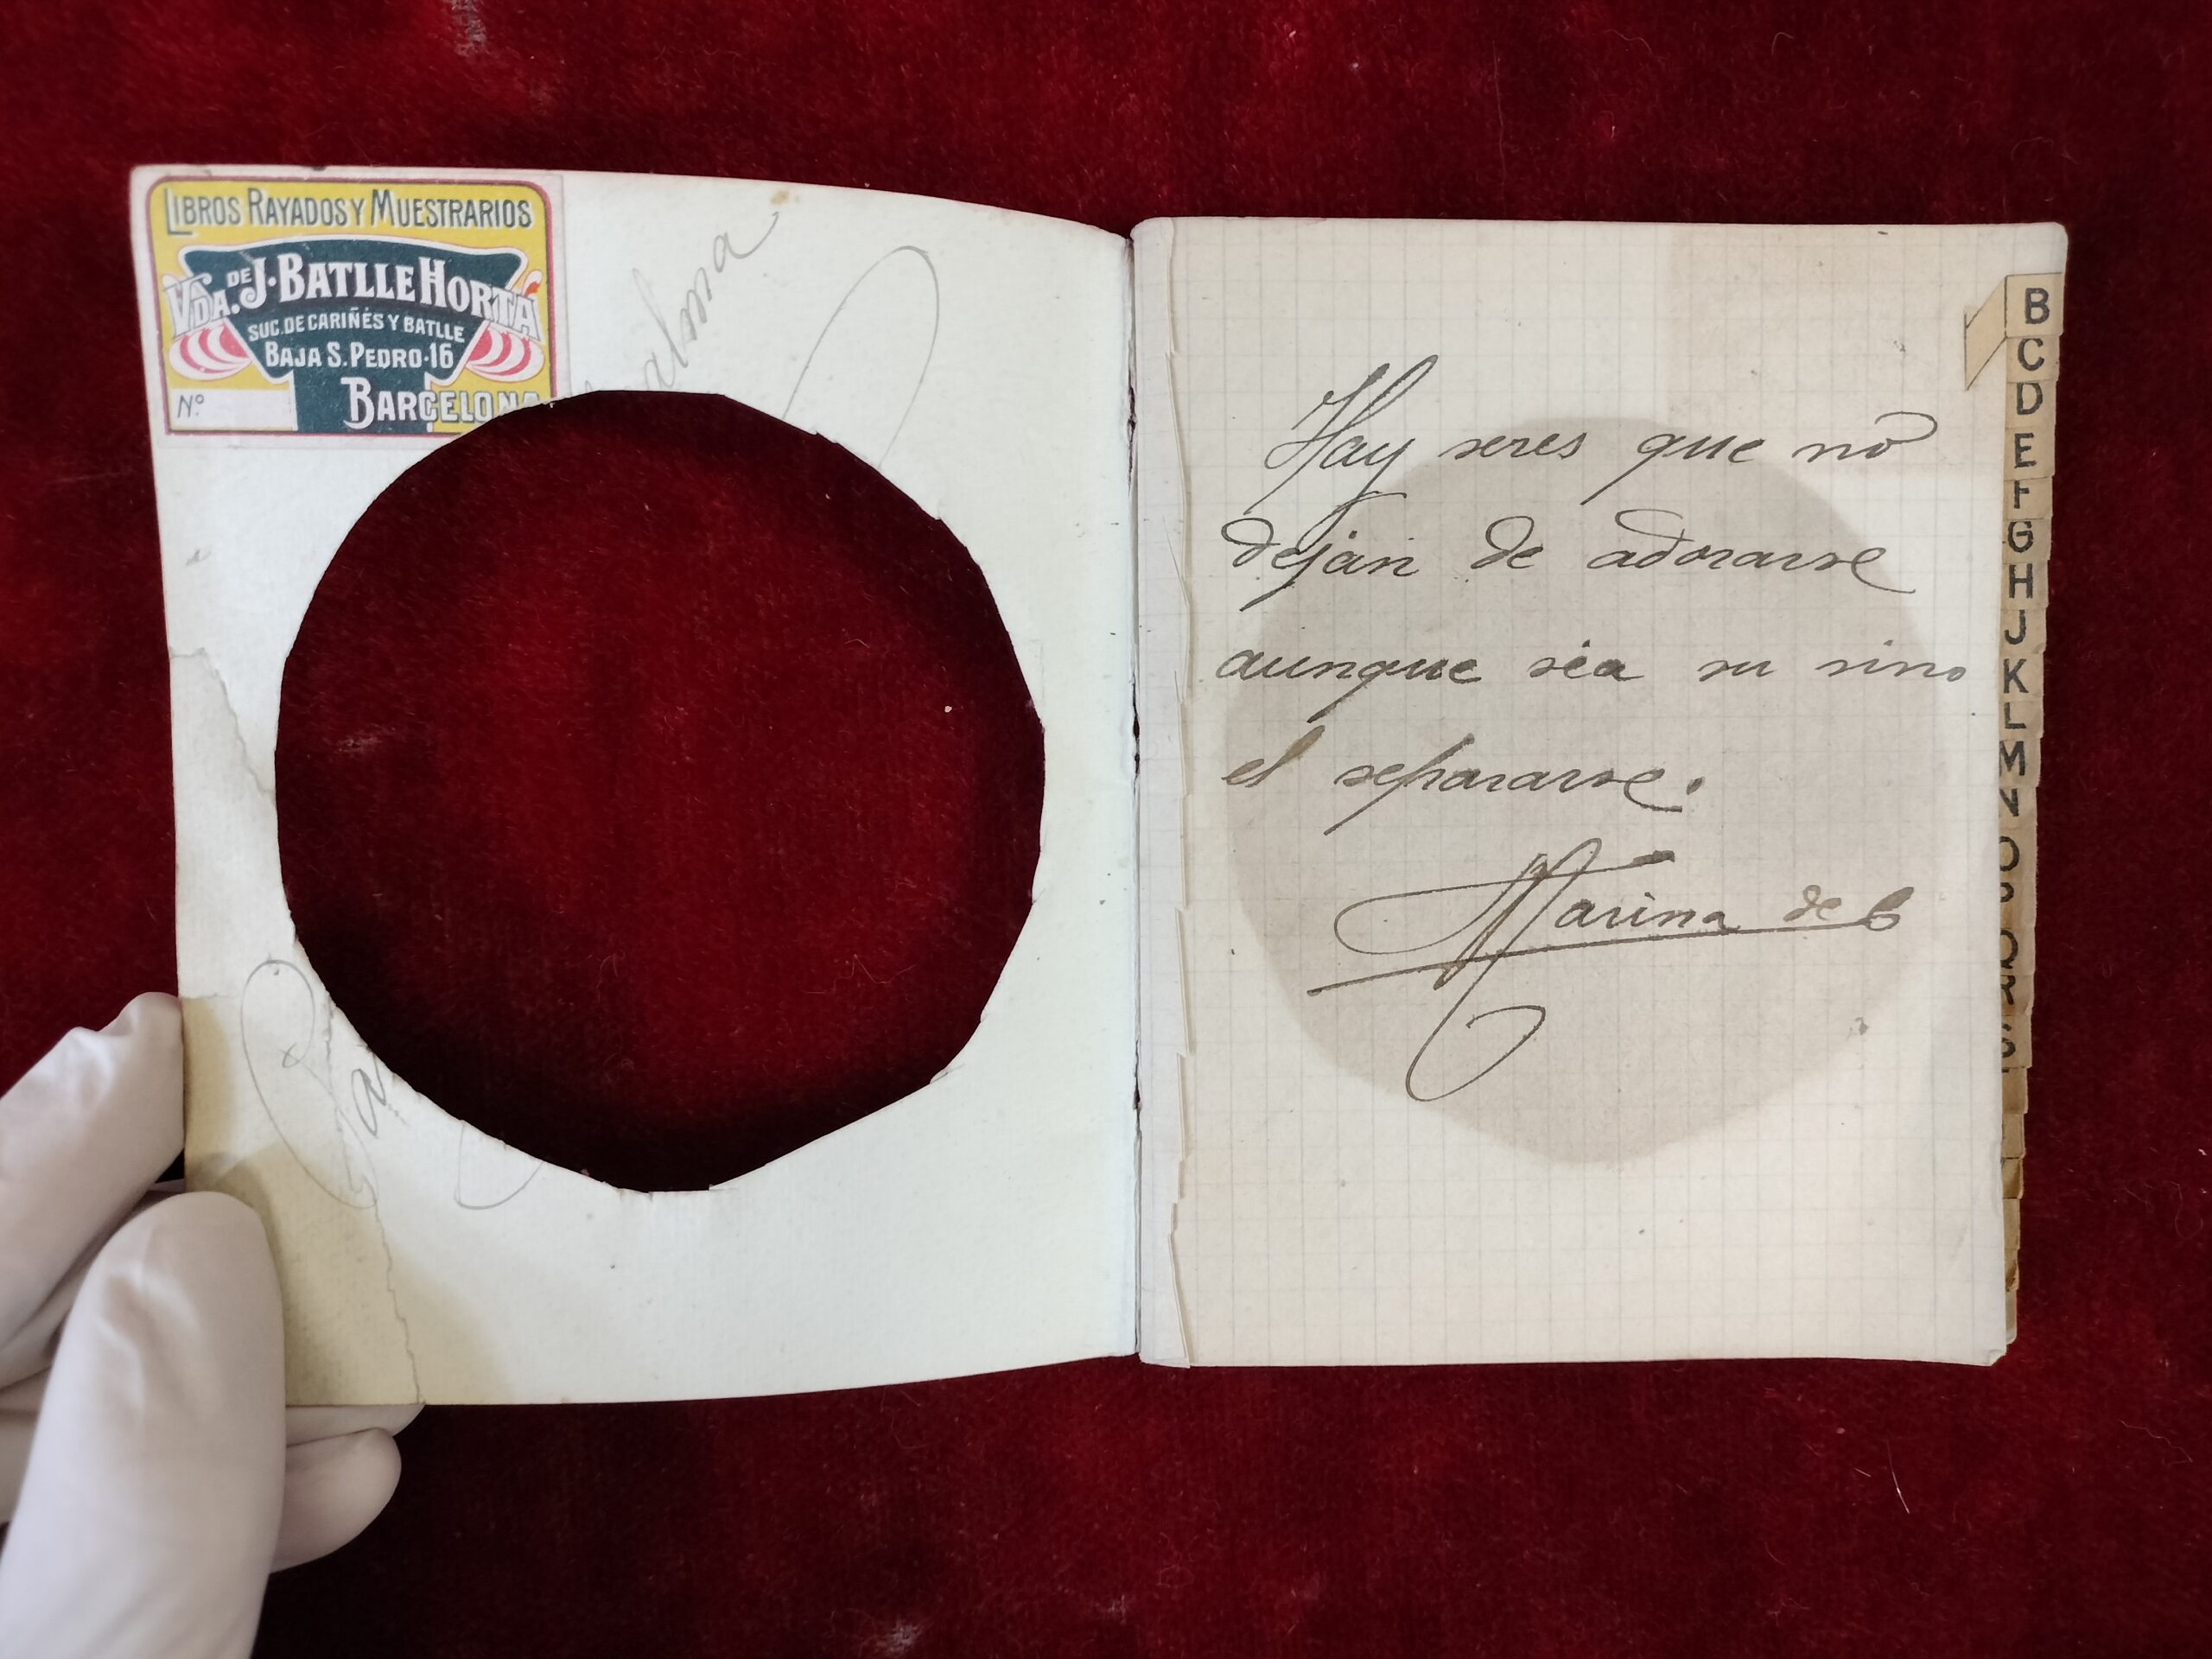 LIBROS RAYADOS Y MUESTRARIOS
VDA. DE J. BATLLE HORTA
SUC. DE CARIÑÉS Y BATLLE
BAJA S. PEDRO-16
BARCELONA
Nº
alma
Hay seres que no
dejan de adorarse
aunque sea su sino
el separarse.
Marina de C
B
C
D
E
F
G
H
J
K
L
M
N
O
P
Q
R
S